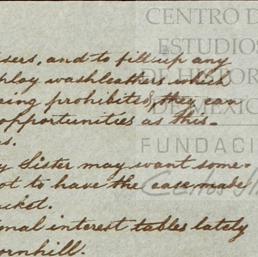 CENTRO D
ESTUDIOS
DE HISTOR
DE MEXICO
FUNDACI
Carlos
sers, and to fill up any
play washleathers which
ring prohibited, they can
opportunities as this
s.
y Sister may want some-
ot to have the case made
cket.
onal interest tables lately
ornhill.